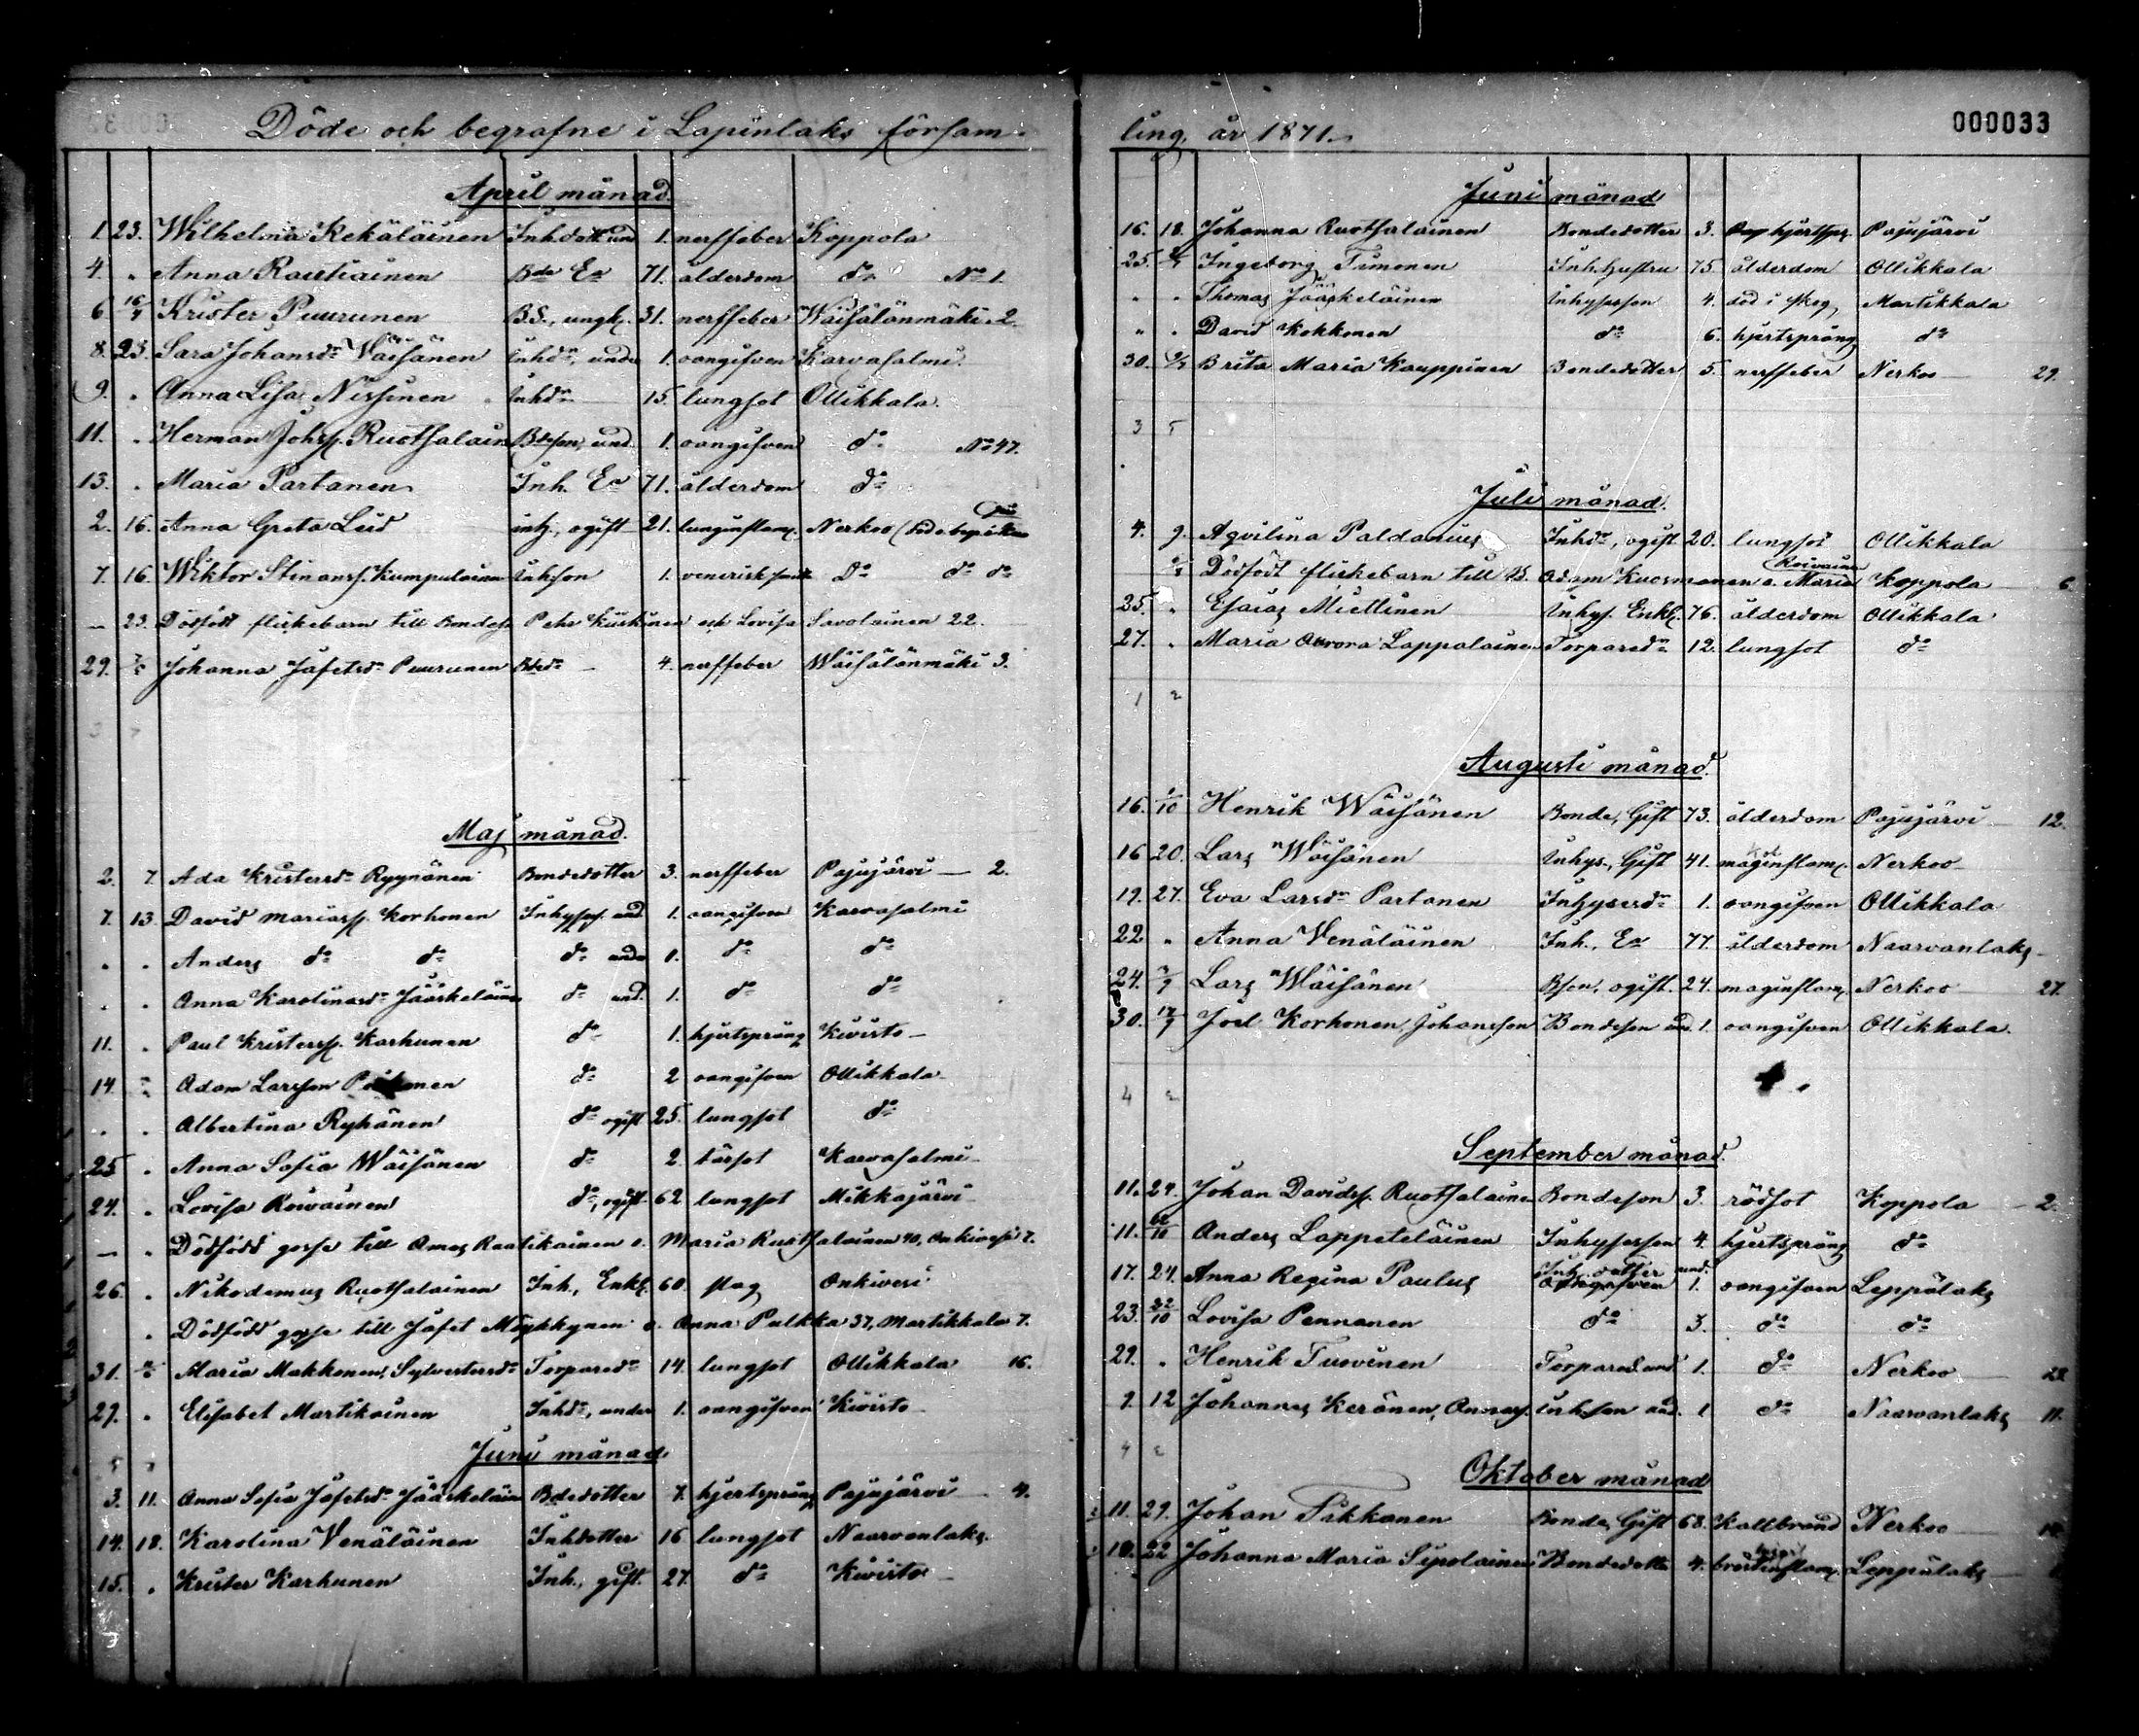 Döde och begrafne i Lapinlaks försam-
April månad.
1. 23. Wilhelmina Kekäläinen Inh.dott. und 1. nerffeber Koppola
4. " Anna Rautiainen Bde Ea 71. ålderdom do No 1.
6 16/4 Krister Puurunen B.S., ungk. 31. nerffeber Wäisälänmäki 2.
8. 23. Sara Johansdr Väisänen Inhdr, under 1. oangifven Karvasalmi.
9. " Anna Lisa Nissinen Inhdr 15. lungsot Ollikkala.
11. " Herman Johss. Ruotsalain Bdeson, und. 1. oangifven do No 47.
13. " Maria Partanen Inh. Ea 71. ålderdom do
2. 16. Anna Greta Leid inh., ogift 21. lunginflam. Nerkoo
7. 16. Wiktor Stinans. Kumpulainen Inhson 1. venerisk Do do do
— 23. Dödfödt flickebarn till Bondes. Pehr Kiiskinen och Lovisa Savolainen 22.
29. 7/5 Johanna Jafetsdr Puurunen Bdedr — 4. nerffeber Wäisälänmäki 3.
Maj månad.
2. 7. Ada Kristersdr Ryynänen Bondedotter 3. nerffeber Pajujärvi — 2.
7. 13. David Mariass. Korhonen Inhyss. und. 1. oangifven Karvasalmi
" " Anders do do do under 1. do do
" " Anna Karolinasdr Jääskeläinen do und. 1. do do
11. " Paul Kristerss. Karhunen do 1. hjertsprång Kivisto —
14. " Adam Larsson do 2 oangifven Ollikkala
" " Albertina Ryhänen do ogift 25. lungsot do
25 " Anna Sofia Wäisänen do 2 tärsot Karvasalmi —
24. " Lovisa Roivainen do, ogift. 62 lungsot Mikkajärvi
— " Dödfödd gosse till Amos Raatikainen o. Maria Ruotsalainen 40, Onkivesi 7.
26. " Nikodemus Ruotsalainen Inh., Enkl. 60. slag Onkivesi
" Dödfödt gosse till Jafet Mykkynen o. Anna Pulkka 37, Martikkala 7.
31. Maria Makkonen, Sylvestersdr Torparedr 14. lungsot Ollikkala 16.
29. " Elisabet Martikainen Inhdr, under 1. oangifven Kivisto
Juni månad.
3. 11. Anna Sofia Jafetsdr Jääskeläin Bdedotter 7. hjertsprång Pajujärvi — 4.
14. 18. Karolina Venäläinen Inhdotter 16 lungsot Naarvanlaks.
15. " Krister Karhunen Inh., gift. 27. do Kivisto —
ling, år 1871.
000033
Juni månad
16. 18. Johanna Ruotsalainen Bondedotter 3. hjertspr. Pajujärvi
25. 2/7 Ingeborg Timonen Inh.hustru 75. ålderdom Ollikkala
" " Thomas Jääskeläinen Inhysson 4. död i skog Martikkala
" " David Kokkonen do 6. hjertsprång do
30. 9/7 Brita Maria Kauppinen Bondedotter 5. nerffeber Nerkoo — 29.
3 5
Juli månad.
4. 9. Aqvilina Paldanius Inhdr, ogift 20. lungsot Ollikkala
Dödfödt flickebarn till Bd. Adam Kuosmanen o. Maria Roivainen Koppola 6.
25. " Esaias Miettinen Inhys. Enkl. 76. ålderdom Ollikkala
27. " Maria Aurora Lappalainen Torparedr 12. lungsot do
1 2
Augusti månad.
16. 1/10 Henrik Wäisänen Bonde, Gift 73. ålderdom Pajujärvi 12.
16 20. Lars Wäisänen Inhys., Gift 41. maginflam. Nerkoo
19. 27. Eva Larsdr Partanen Inhysesdr 1. oangifven Ollikkala
22 " Anna Venäläinen Inh., Ea 77. ålderdom Naarvanlaks
24. 3/9 Lars Wäisänen Bson, ogift. 24. maginflam. Nerkoo 27.
30. 17/9 Joel Korhonen, Johansson Bondeson und. 1. oangifven Ollikkala.
4 2
September månad.
11. 24. Johan Davids. Ruotsalaine Bondeson 3. rödsot Koppola — 2.
11. Anders Lappeteläinen Inhysesson 4. hjertsprång do
17. 24. Anna Regina Paulus Inh. dotter und. 1. oangifven Leppälaks
23. 22/10 Lovisa Pennanen do 3. do do
29. " Henrik Tuovinen Torpared und 1. do Nerkoo 28.
9. 12 Johannes Keränen, Annas. Inhson und. 1. do Naarvanlaks 11.
4 2
Oktober månad
11. 29. Johan Tikkanen Bonde, Gift 68. Kallbrand Nerkoo
10. 22 Johanna Maria Sipolainen Bondedotte 4. bröstinflam. Leppälaks